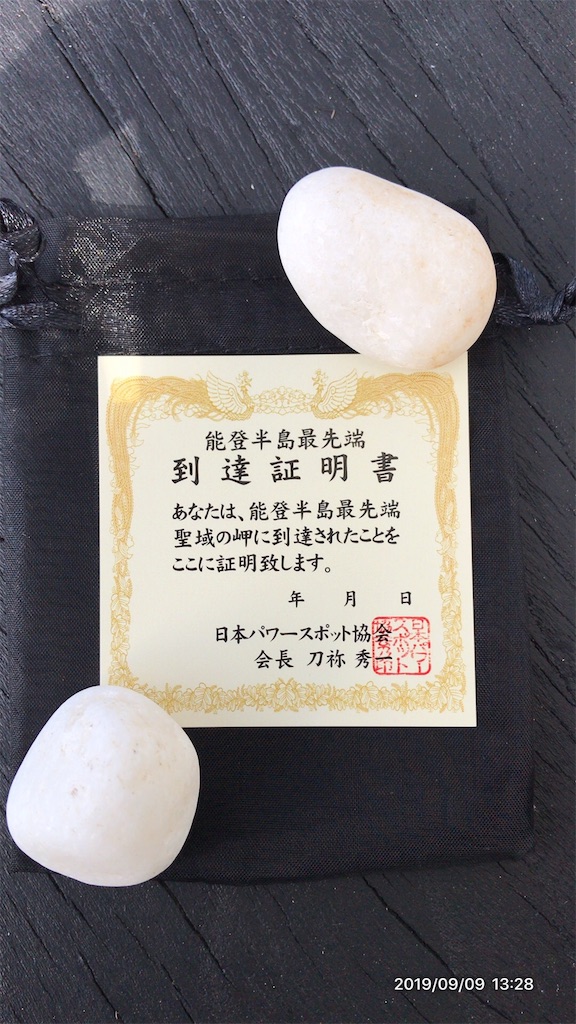 能登半島最先端
到達証明書
あなたは、能登半島最先端
聖域の岬に到達されたことを
ここに証明致します。
年 月 日
日本パワースポット協会
会長 刀祢 秀一
2019/09/09 13:28